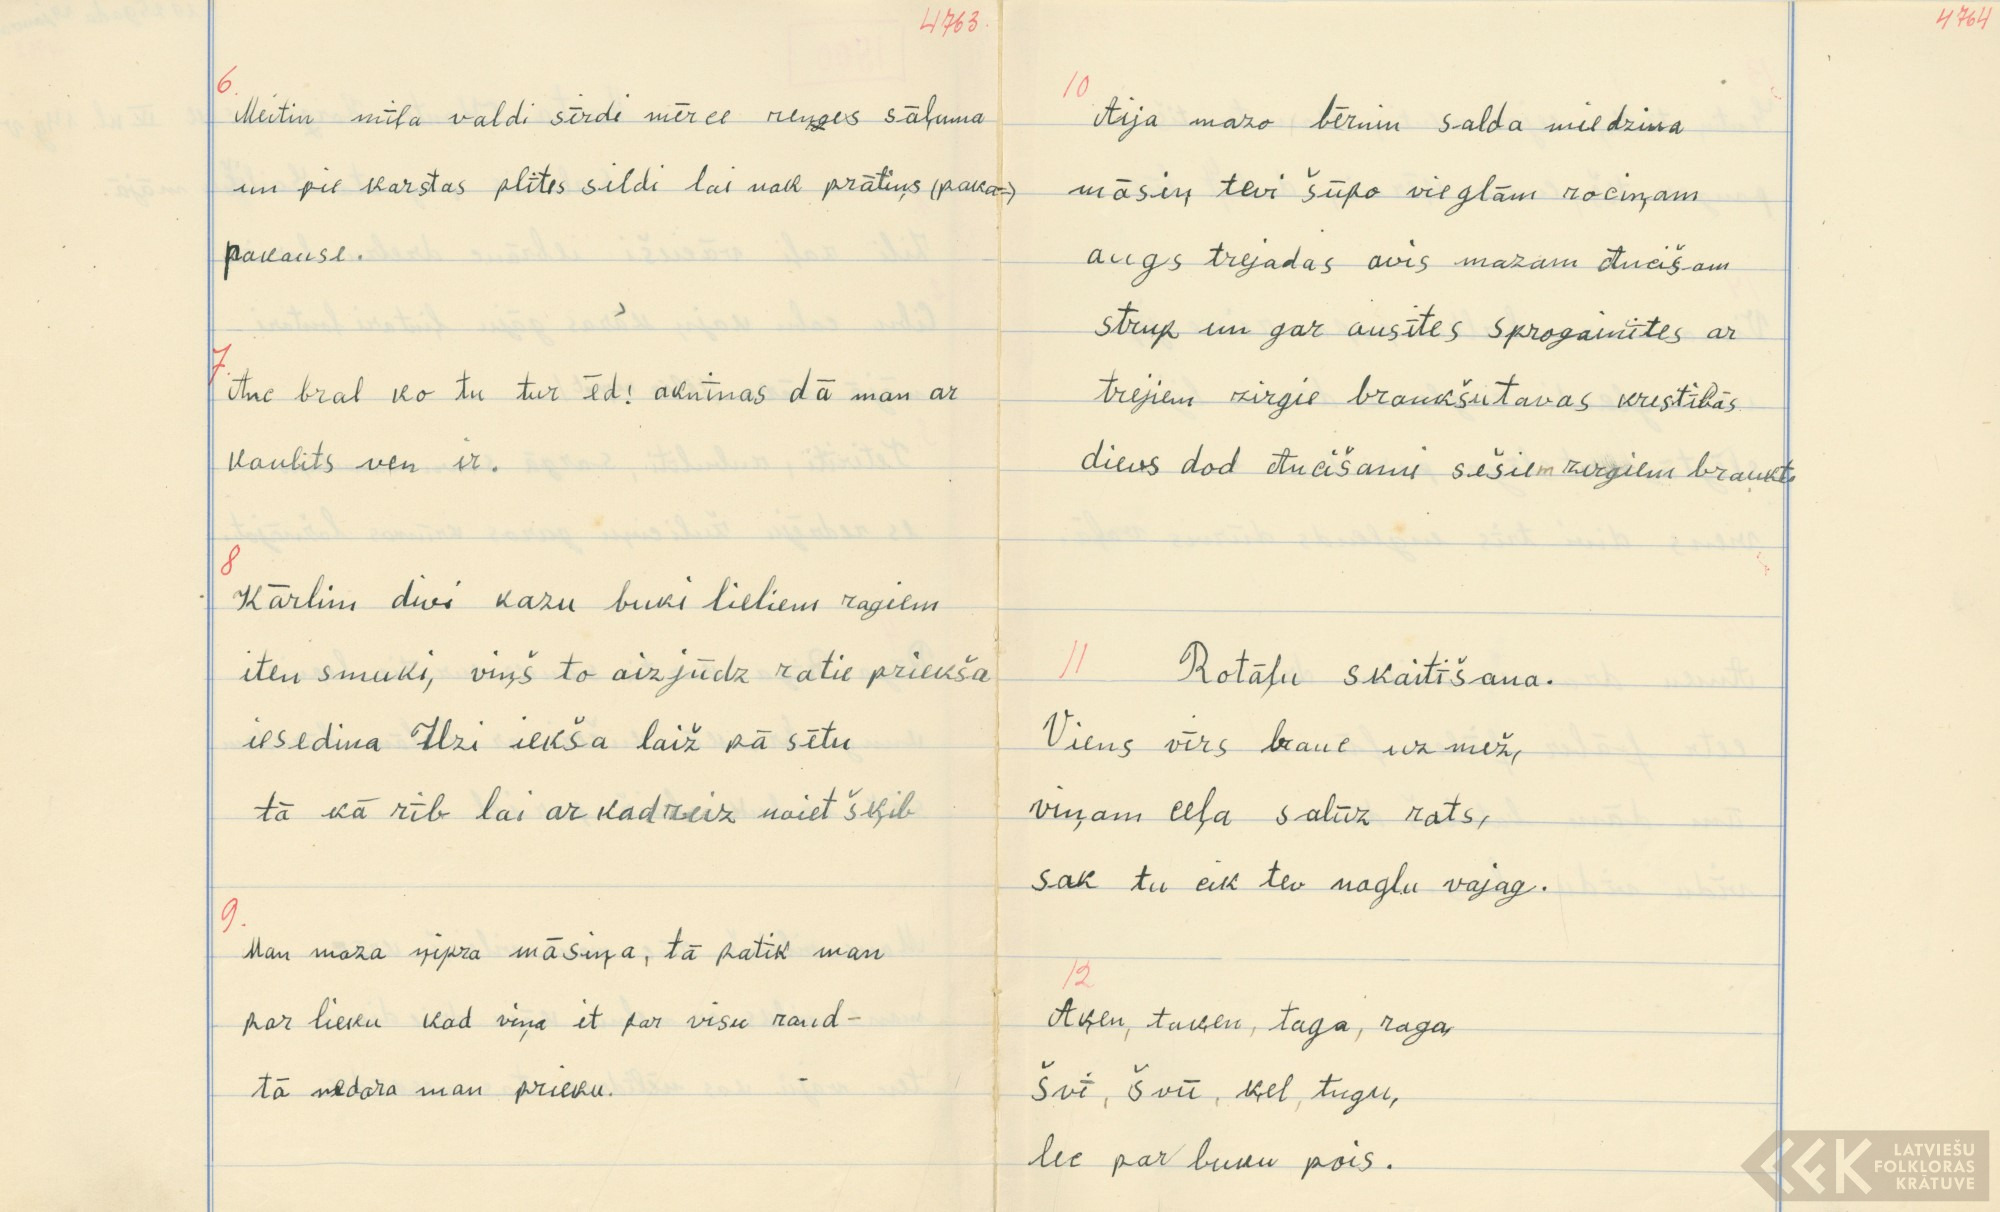 4763.
6.
Meitin mīļa valdi sirdi mērce renges sāļuma
un pie karstas plītes sildi lai nak prātiņs (paka-)
pakause.
7.
Anc bral ko tu tur ēd! aknīnas dā man ar
kaulits ven ir.
8
Kārlim divi kazu buki lieliem ragiem
iten smuki, viņš to aizjūdz ratie priekša
iesedina Ilzi iekša laiž pā sētu
tā kā rīb lai ar kadreiz noiet šķib
9.
Man maza ņipra māsiņa, tā patīk man
par lieku kad viņa it par visu raud-
tā nedara man prieku.
4764
10
Aija mazo bērnin salda miedzina
māsiņ tevi šūpo vieglām rociņam
augs trejadas avis mazam Ancišam
strup un gar ausītes sprogainītes ar
trejiem zirgie braukšutavas krestībās
dievs dod Ancišami sešiem zirgiem braukt
11
Rotāļu skaitīšana.
Viens vīrs brauc uz mež,
viņam ceļa salūz rats,
sak tu cik tev naglu vajag.
12
Aķen, taķen, taga, raga,
švī, švū, ķel, tugu,
lec par buku pois.
LATVIEŠU
FOLKLORAS
KRĀTUVE